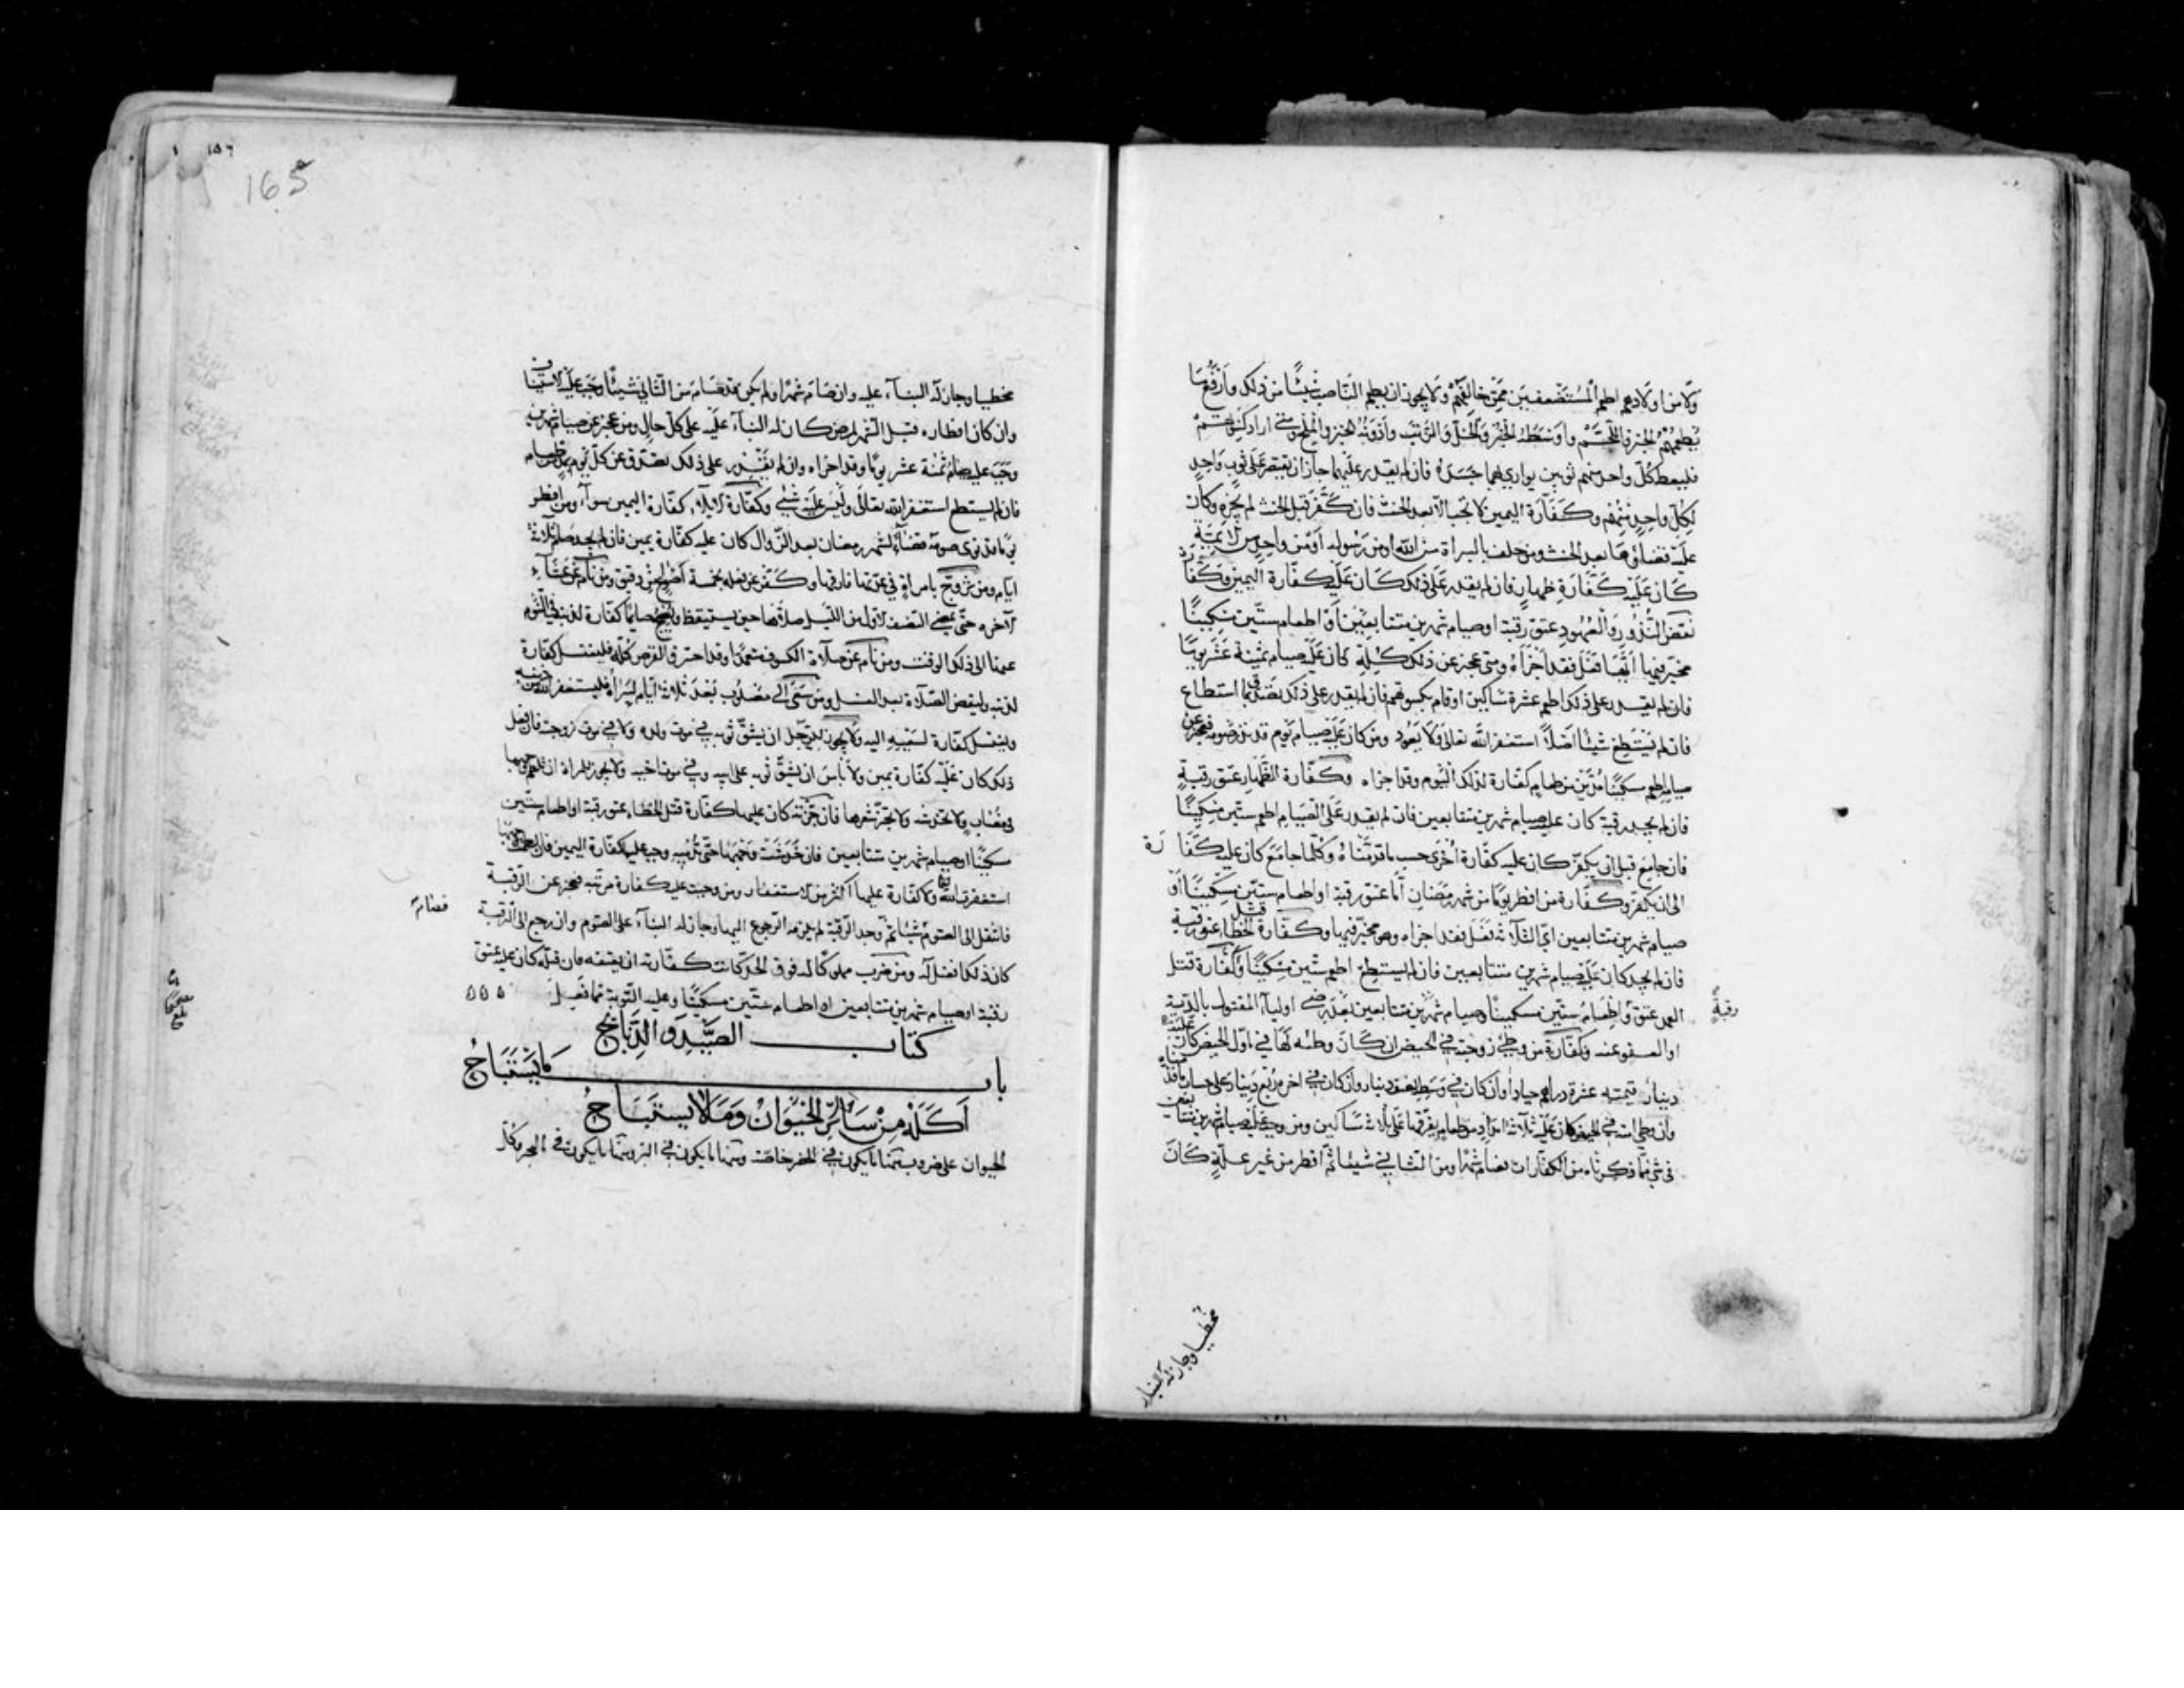 ولا من اولادهم اطعم المستضعفين ممن خالفهم ولا يجوز ان يطعم الناصب شيئا من ذلك وارفع ما
يطعمهم الخبز واللحم واوسطه الخبز والخل والزيت وادونه الخبز والملح ومتى اراد كسوتهم
فليعط كل واحد منهم ثوبين يواري بهما جسده فان لم يقدر عليهما جاز ان يقتصر على ثوب واحد
لكل واحد منهم وكفارة اليمين لا تجب الا بعد الحنث فان كفر قبل الحنث لم يجزه وكان
عليه قضاؤها بعد الحنث ومن حلف بالبراءة من الله او من رسوله او من واحد من الائمة
كان عليه كفارة ظهار فان لم يقدر على ذلك كان عليه كفارة اليمين وكفارة
نقض النذور والعهود عتق رقبة او صيام شهرين متتابعين او اطعام ستين مسكينا
مخير فيها ايها فعل فقد اجزاه ومتى عجز عن ذلك كله كان عليه صيام ثمنية عشر يوما
فان لم يقدر على ذلك اطعم عشرة مساكين او قام بكسوتهم فان لم يقدر على ذلك تصدق بما استطاع
فان لم يستطع شيئا اصلا استغفر الله تعالى ولا يعود ومن كان عليه صيام يوم قد نذر صومه فعجز عن
صيامه اطعم مسكينا مدين من طعام كفارة لذلك اليوم وقد اجزاه وكفارة الظهار عتق رقبة
فان لم يجد رقبة كان عليه صيام شهرين متتابعين فان لم يقدر على الصيام اطعم ستين مسكينا
فان جامع قبل ان يكفر كان عليه كفارة اخرى حسب ما قدمناه وكلما جامع كان عليه كفارة
الى ان يكفر وكفارة من افطر يوما من شهر رمضان اما عتق رقبة او اطعام ستين مسكينا او
صيام شهرين متتابعين اي الثلاثة فعل فقد اجزاه وهو مخير فيها وكفارة قتل الخطاء عتق رقبة
فان لم يجد كان عليه صيام شهرين متتابعين فان لم يستطع اطعم ستين مسكينا وكفارة قتل
العمد عتق رقبة واطعام ستين مسكينا وصيام شهرين متتابعين بعد رضى اولياء المقتول بالدية
او العفو عنه وكفارة من وطئ زوجته في الحيض ان كان وطئه لها في اول الحيض كان عليه
دينار قيمته عشرة دراهم جيادا وان كان في وسطه نصف دينار وان كان في اخره ربع دينار على حساب ما قدمناه
وان وطئ امته في الحيض كان عليه ثلاثة امداد من طعام يفرقها على ثلاثة مساكين ومن وجب عليه صيام شهرين متتابعين
في شيء مما ذكرناه من الكفارات فصام شهرا ومن الثاني شيئا ثم افطر من غير علة كان
رقبة
مخطيا وجاز له البنا
١٥٦
165
مخطيا وجاز له البناء عليه وان صام شهرا ولم يكن قد صام من الثاني شيئا وجب عليه الاستيناف
وان كان افطاره قبل الشهر لمرض كان له البناء عليه على كل حال ومن عجز عن صيام شهرين
وجب عليه صيام ثمنية عشر يوما وقد اجزاه وان لم يقدر على ذلك تصدق عن كل يوم بمد من طعام
فان لم يستطع استغفر الله تعالى وليس عليه شيء وكفارة الايلاء كفارة اليمين سواء ومن افطر
يوما قد نوى صومه قضاء لشهر رمضان بعد الزوال كان عليه كفارة يمين فان لم يجد صام ثلاثة
ايام ومن تزوج بامراة في عدتها فارقها وكفر عن فعله بخمسة اصواع من دقيق ومن نام عن عشاء
الاخرة حتى يمضي النصف الاول من الليل صلاها حين يستيقظ ويصبح صائما كفارة لذنبه في النوم
عنها الى ذلك الوقت ومن نام عن صلاة الكسوف متعمدا وقد احترق القرص كله فليغتسل كفارة
لذنبه وليقض الصلاة بعد الغسل ومن سعى الى مصلوب بعد ثلاثة ايام ليراه فليستغفر الله من ذنبه
وليغتسل كفارة لسعيه اليه ولا يجوز للرجل ان يشق ثوبه في موت ولده ولا في موت زوجته فان فعل
ذلك كان عليه كفارة يمين ولا باس ان يشق ثوبه على ابيه وفي موت اخيه ولا يجوز للمراة ان تلطم وجهها
في مصاب ولا تخدشه ولا تجز شعرها فان جزته كان عليها كفارة قتل الخطاء عتق رقبة او اطعام ستين
مسكينا او صيام شهرين متتابعين فان خدشت وجهها حتى تدميه وجب عليها كفارة اليمين فان لطمت وجهها
استغفرت الله تعالى ولا كفارة عليها اكثر من الاستغفار ومن وجبت عليه كفارة مرتبة فعجز عن الرقبة
فانتقل الى الصوم فصام شيئا ثم وجد الرقبة لم يلزمه الرجوع اليها وجاز له البناء على الصوم وان رجع الى الرقبة
كان ذلك افضل له ومن ضرب مملوكا له فوق الحد كانت كفارته ان يعتقه فان قتله كان عليه عتق
رقبة او صيام شهرين متتابعين او اطعام ستين مسكينا وعليه التوبة مما فعل ۵۵۵
كتاب الصيد والذبائح
باب ما يستباح
اكله من سائر الحيوان وما لا يستباح
الحيوان على ضروب منها ما يكون في الحضر خاصة ومنها ما يكون في البر ومنها ما يكون في البحر وكل
فصام